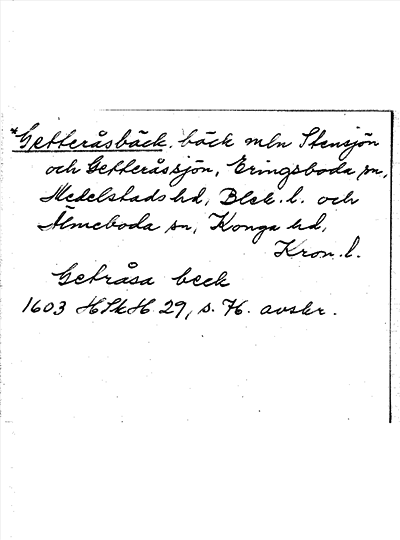 *Getteråsbäck, bäck mln Stensjön
och Getteråssjön, Eringsboda sn,
Medelstads hd, Blek. l. och
Älmeboda sn, Konga hd,
Kron. l.
Getråsa beck
1603 HSkH 29, s. 76. avskr.